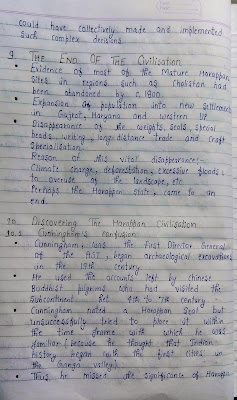 could have collectively made and implemented
such complex decisions.
9. THE END OF THE Civilisation
• Evidence of most of the Mature Harappan
sites in regions such as Cholistan had
been abandoned by c. 1800.
• Expansion of population into new settlements
in Gujrat, Haryana and western UP
• Disappearance of the weights, seals, special
beads, writing, long-distance trade and craft
specialisation.
• Reason of this vital disappearance:-
Climate change, deforestation, excessive floods,
to overuse of the landscape, etc.
• Perhaps the Harappan state, came to an
end.
10. Discovering The Harappan Civilisation
10.1 Cunningham's confusion:
• Cunningham, was the first Director General
of the ASI, began archaeological excavations
in the 19th century.
• He used the accounts left by Chinese
Buddhist pilgrims who had visited the
Subcontinent bet 4th to 7th century
• Cunningham noted a Harappan Seal but
unsuccessfully tried to place it within
the time frame with which he was
familiar (because he thought that Indian
history began with the first cities in
the Ganga valley).
• Thus, he missed the significance of Harappa